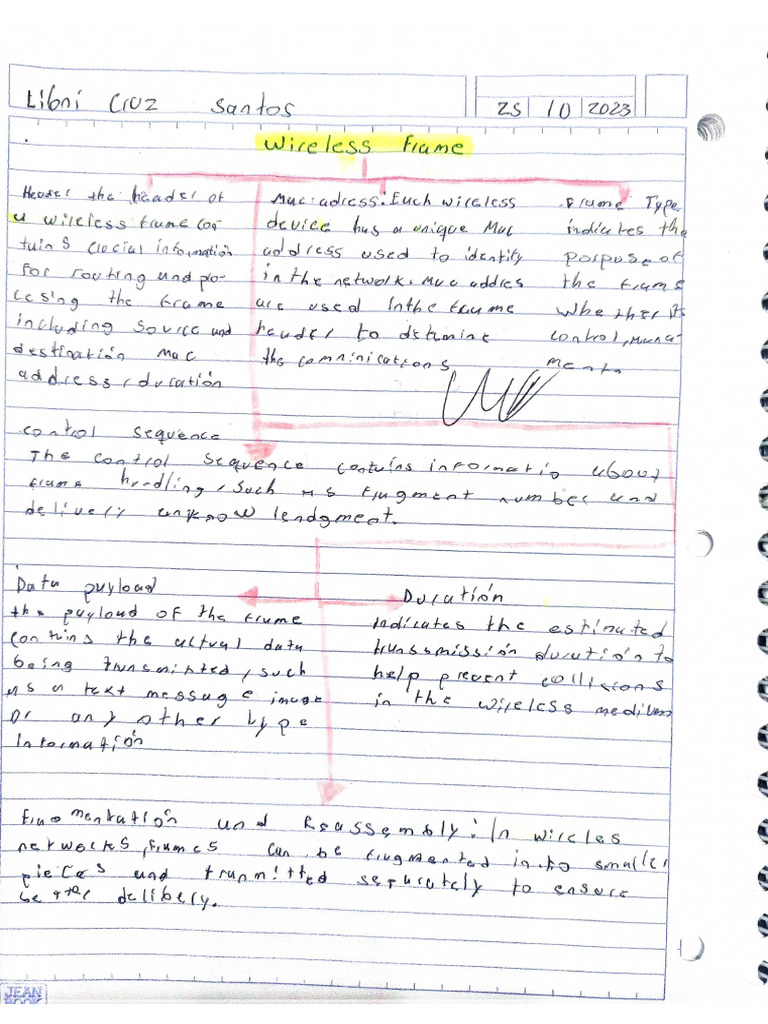 Libni Cruz Santos
25 10 2023
Wireless frame
Header the header of
a wireless frame con
tains crucial information
for routing and pro-
cesing the frame
including source and
destination Mac
address, duración
Mac: adress: Each wireless
device has a unique Mac
address used to identify
in the network. Mac addres
are used in the frame
header to detamine
the comninications
Frame Type
indicates the
porpuse of
the frame
whether its
control, mana-
ments
control sequence
The control sequence contains informatio about
frame handling, such as fragment number and
delivery unknowlendgment.
Data payload
the payload of the frame
contains the altual data
being transmited, such
as a text message image
or any other type
Información
Duración
Indicates the estimated
transemission duration to
help prevent collisions
in the wireless medium
Fragmentación and Reassembly: In wireles
networks, frames can be fragmented into smaller
pieces and tranmitted separately to ensure
better delibery.
JEAN
BOOK